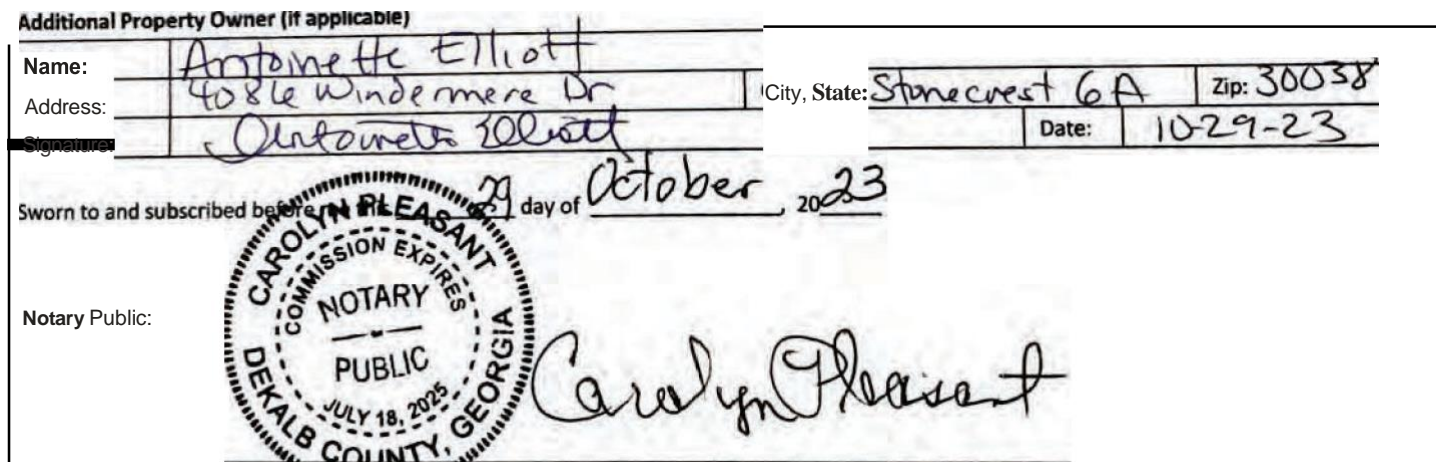 Additional Property Owner (if applicable)
Name: Antoinette Elliott
Address: 4086 Windermere Dr City, State: Stonecrest GA Zip: 30038
Signature: Antoinette Elliott Date: 10-29-23
Sworn to and subscribed before me this 29 day of October, 2023
Notary Public:
CAROLYN PLEASANT
COMMISSION EXPIRES
NOTARY
PUBLIC
JULY 18, 2025
DEKALB COUNTY, GEORGIA
Carolyn Pleasant